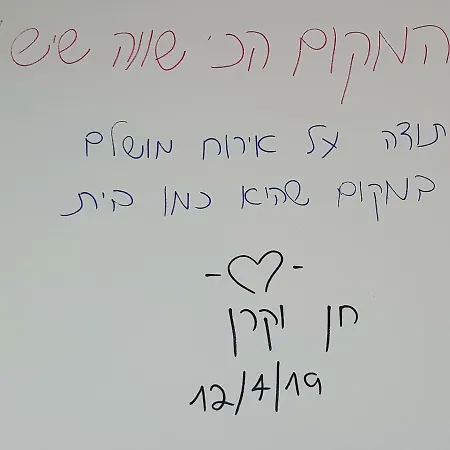 המקום הכי שווה שיש
תודה על אירוח מושלם
במקום שהיא כמו בית
חן וקרן
12/4/19